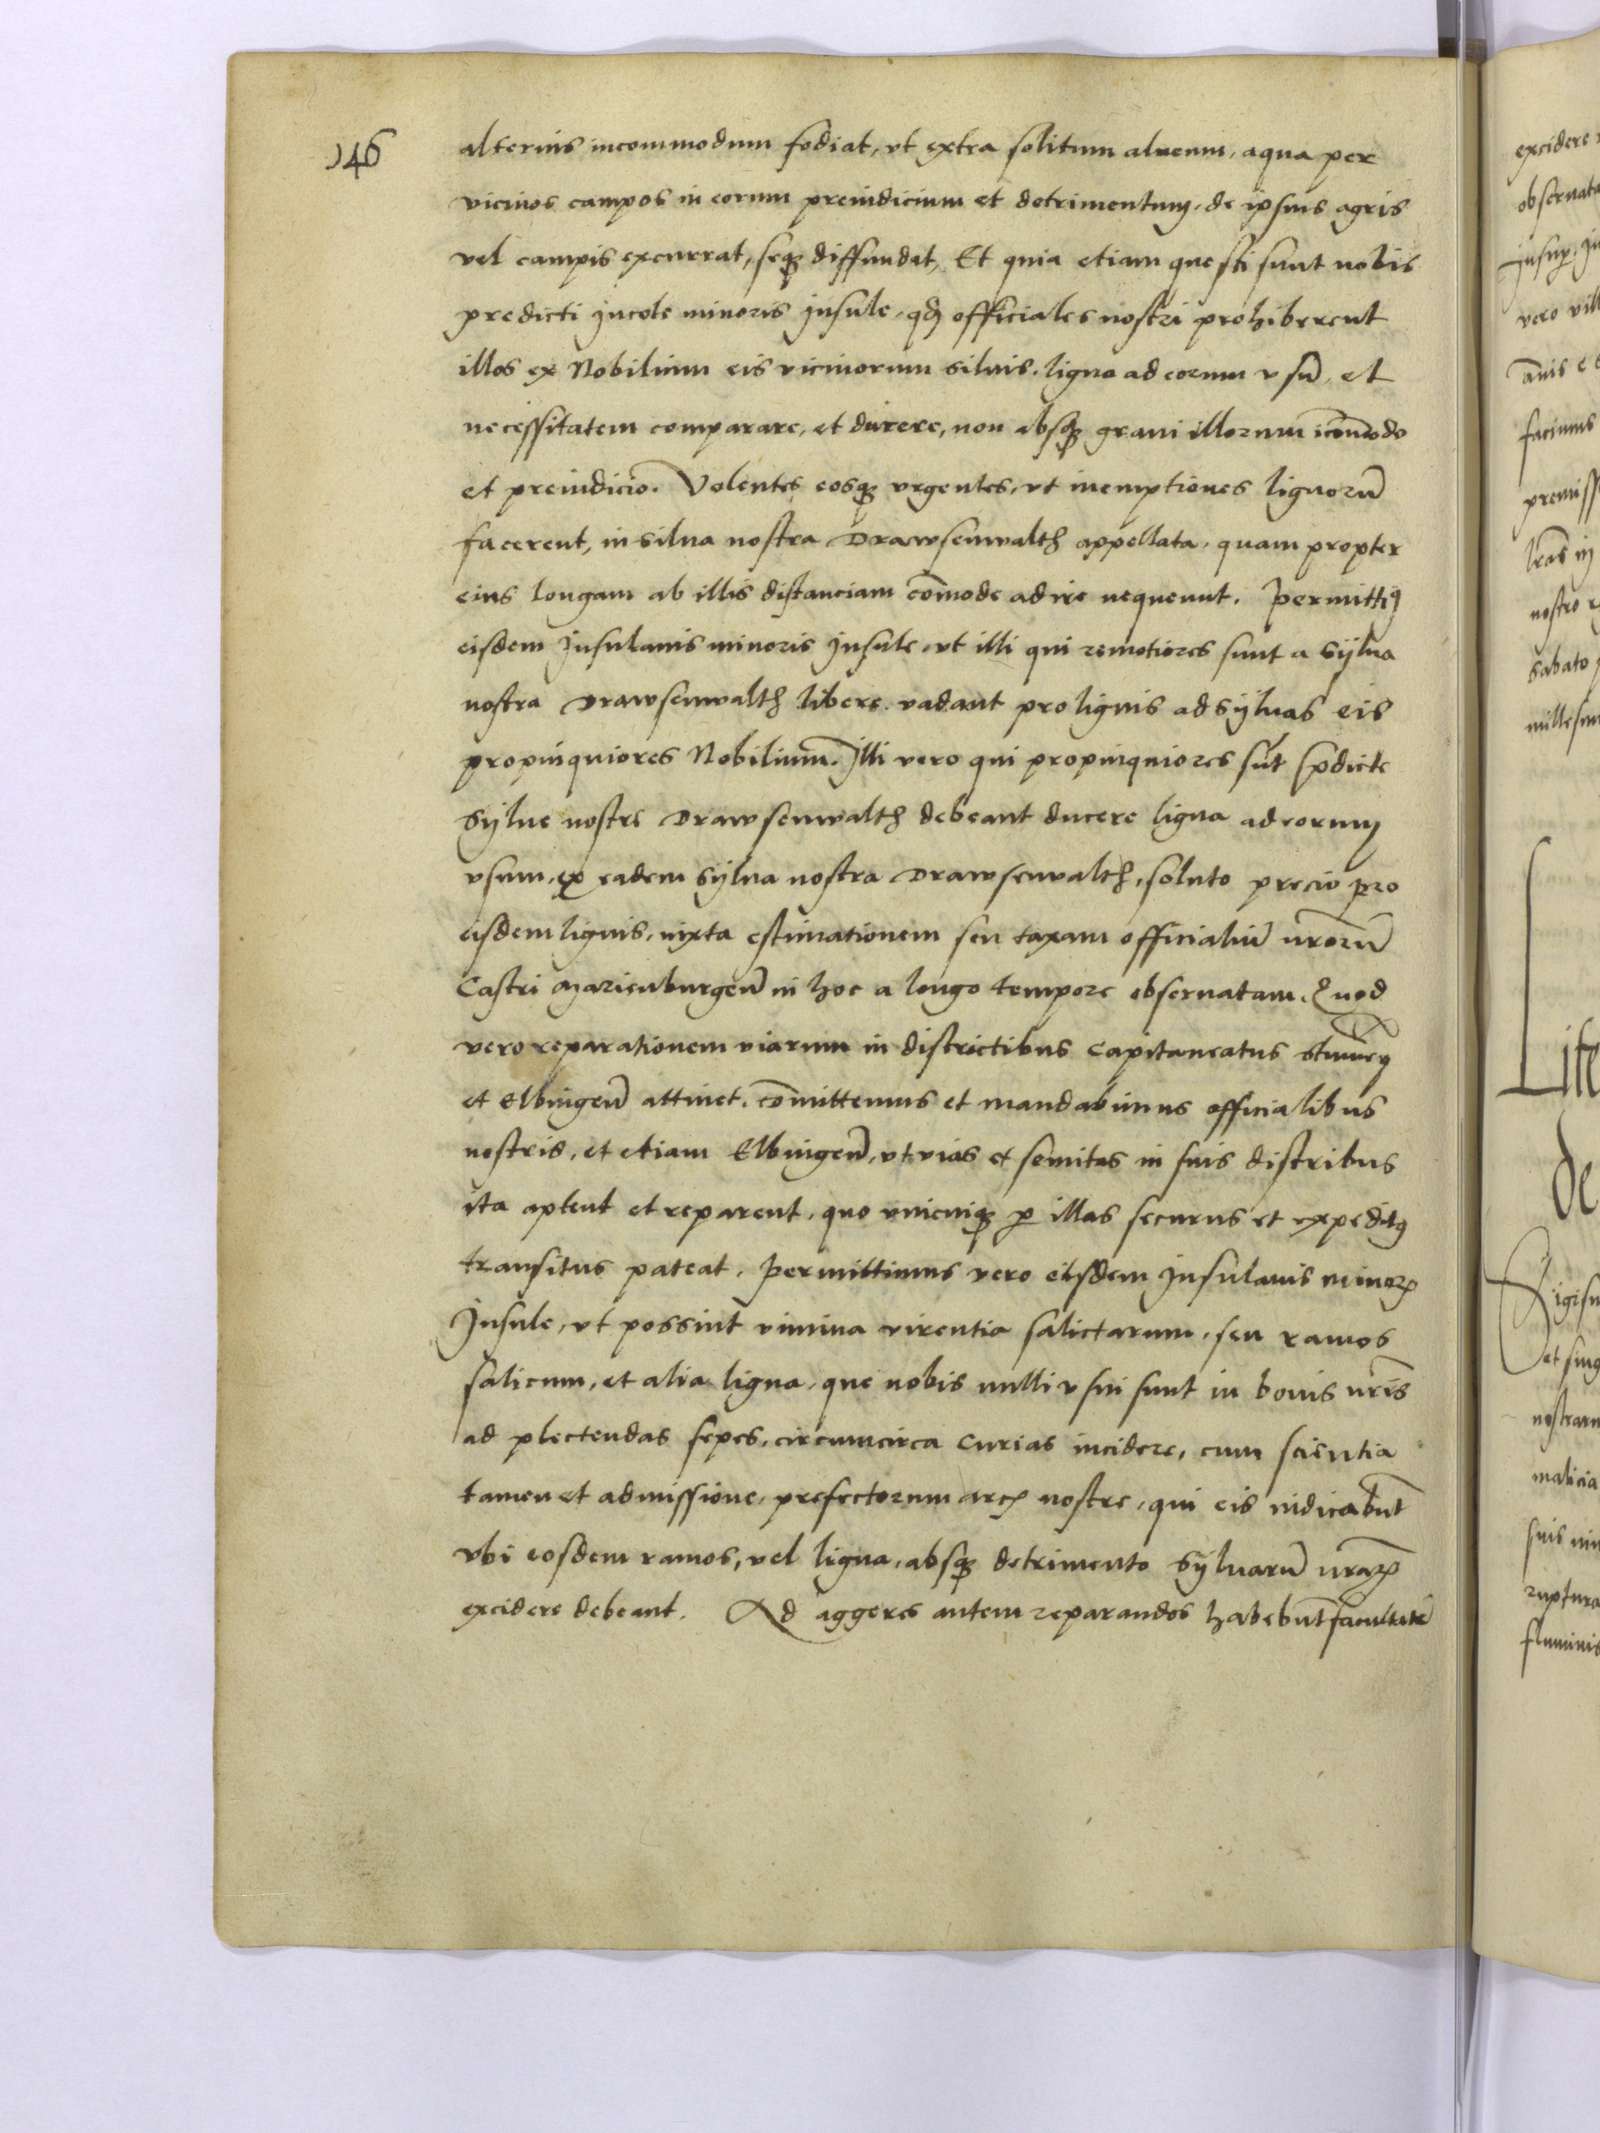 146
alterius incommodum fodiat, vt extra solitum alueum, aqua per
vicinos campos in eorum preiudicium et detrimentum, de ipsius agris
vel campis excurrat, seq₃ diffundat, Et quia etiam questi sunt nobis
predicti Incole minoris Insule, qđ officiales nostri prohiberent
illos ex Nobilium eis vicinorum siluis, ligna ad eorum vsū, et
necessitatem comparare, et ducere, non absq₃ graui illorum icōmodo
et preiudicio. Volentes eosq₃ vrgentes, vt inemptiones lignorū
facerent, in silua nostra Drawsenwalth appellata, quam propter
eius longam ab illis distanciam cōmode adire nequeunt. Permittimꝰ
eisdem Insulanis minoris Insule, vt illi qui remotiores sunt a Sylua
nostra Drawsenwalth libere vadant pro lignis ad syluas eis
propinquiores Nobilium. Illi vero qui propinquiores sūt sp̄dicte
Sylue nostre Drawsenwalth debeant ducere ligna ad eorum
vsum, ex eadem Sylua nostra Drawsenwalth, soluto precio pro
eisdem lignis, iuxta estimationem seu taxam officialiū nr̄orū
Castri Marienburgeñ in hoc a longo tempore obseruatam. Quod
vero reparationem viarum in districtibus Capitaneatus
et Elbingeñ attinet, cōmittemus et mandabimus officialibus
nostris, et etiam Elbingeñ, vt vias et semitas in suis distribus
ita aptent et reparent, quo vnicuiq₃ ꝑ illas securus et expeditꝰ
transitus pateat. Permittimus vero eisdem Insulanis minorꝭ
Insule, vt possint vimina virentia salictarum, seu ramos
salicum, et alia ligna, que nobis nulli vsui sunt in bonis nr̄is
ad plectendas sepes, circumcirca curias incidere, cum scientia
tamen et admissione, prefectorum arcꝭ nostre, qui eis indicabūt
vbi eosdem ramos, vel ligna, absq₃ detrimento Syluarū nr̄aꝝ
excidere debeant. Ad aggeres autem reparandos habebūt facultatē
excidere
obseruata
Insuꝑ, In
vero vill
facimus
premiss
lr̄as in
nostro
Sabato
millesim
Lite
de
Sigism
et sing
nostraru
malicia
suis
ruptura
fluminis